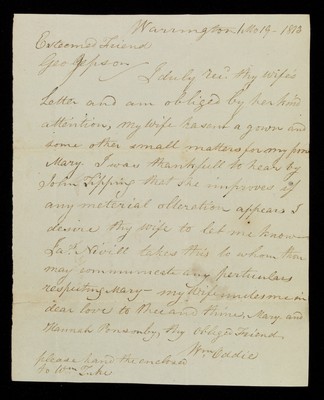 Warrington 1 Mo 19 - 1813
Esteemed Friend
Geo Jepson
I duly recd. thy wife's
Letter and am obliged by her kind
attention, my Wife has sent a gown and
some other small matters for my poor
Mary I was thankfull to hear by
John Tipping that she improves if
any meterial alteration appears I
desire thy wife to let me know
Jas. Nevitt takes this to whom thou
may communicate any particulars
respecting Mary - my Wife unites me in
dear love to thee and thine, Mary and
Hannah Ponsonby, thy obliged Friend,
Wm Eddie
please hand the enclosed
to Wm Tuke